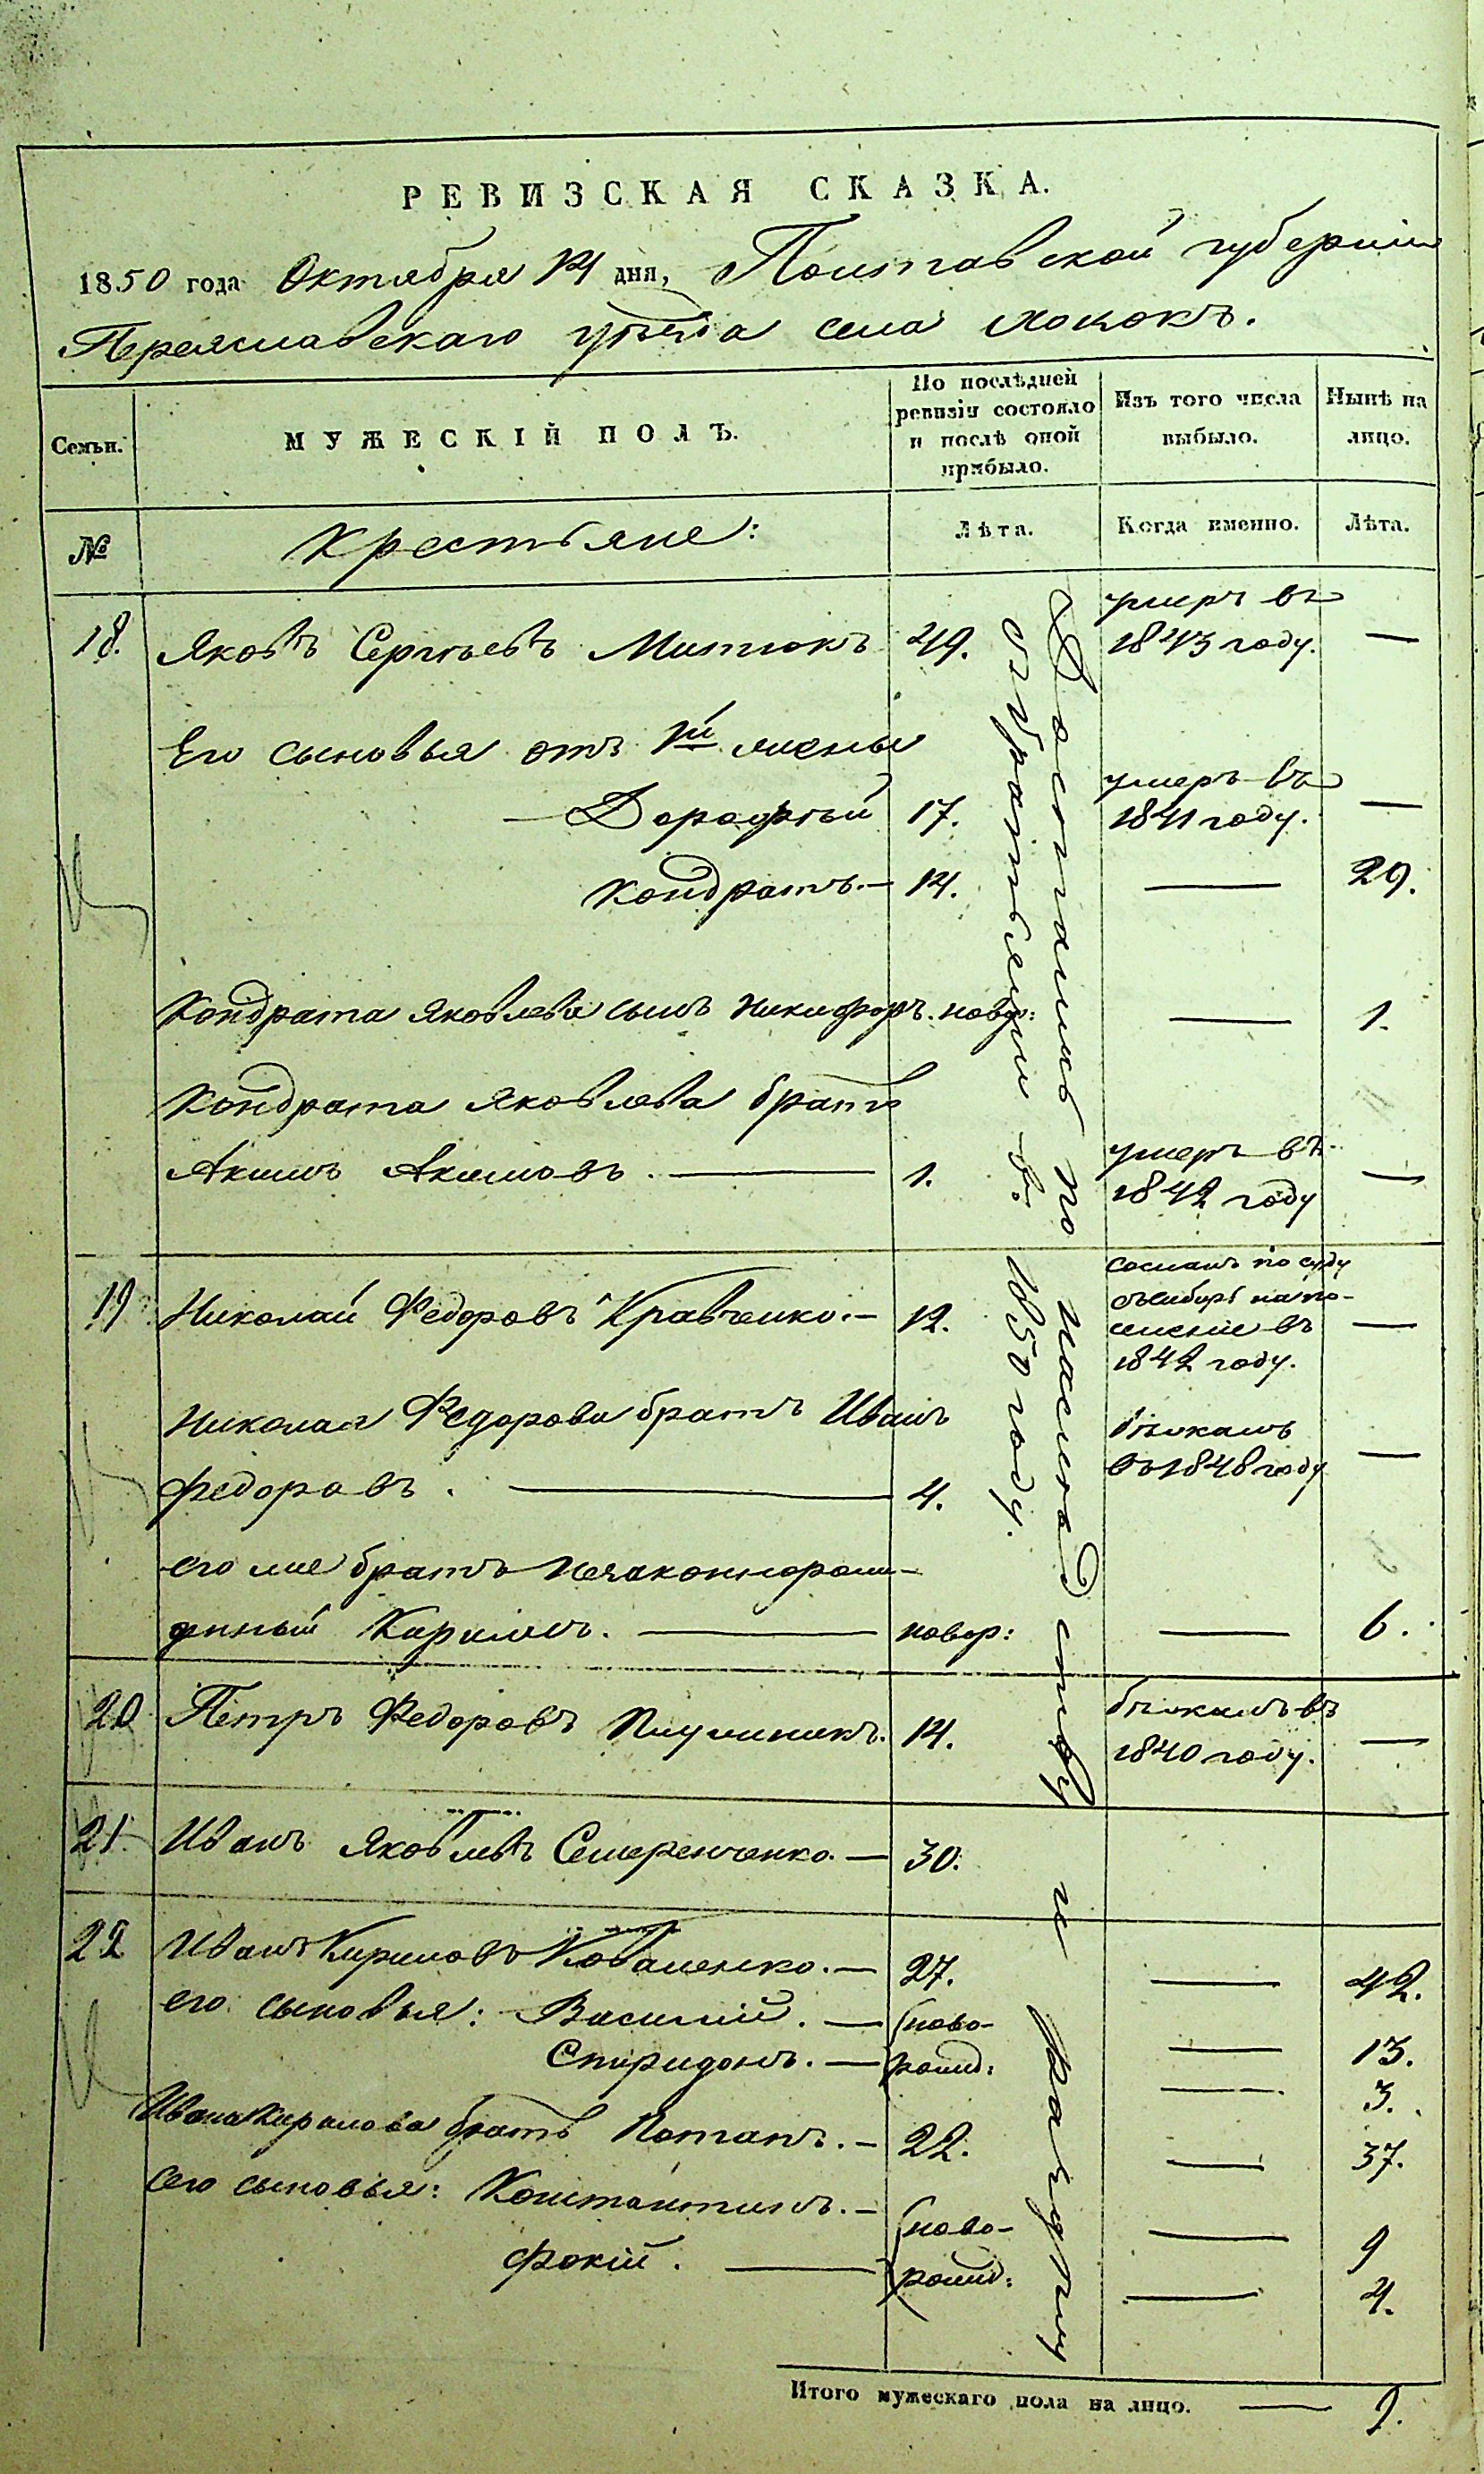 РЕВИЗСКАЯ СКАЗКА.
1850 года Октября 14 дня, Полтавской губернии
Переяславскаго уѣзда села Лококъ.
Семьи.
МУЖЕСКІЙ ПОЛЪ.
По послѣдней ревизіи состояло и послѣ оной прибыло.
Изъ того числа выбыло.
Нынѣ на лицо.
№
Крестьяне:
Лѣта.
Когда именно.
Лѣта.
Достались по наслѣдству и раздѣлу
съ братьями въ 1850 году.
18. Яковъ Сергѣевъ Митюкъ 49. умеръ въ 1843 году. —
Его сыновья отъ 1й жены
— Дорофѣй 17. умеръ въ 1841 году. —
Кондратъ. — 14. — 29.
Кондрата Яковлева сынъ Никифоръ. новор: — 1.
Кондрата Яковлева братъ
Акимъ Акимовъ. — 1. умеръ въ 1842 году —
19 Николай Федоровъ Кравченко. — 12. сосланъ по суду въ Сибирь на поселеніе въ 1842 году. —
Николая Федорова братъ Иванъ
Федоровъ. — 4. бѣжалъ въ 1848 году —
его же братъ незаконнорож-
денный Кирилъ. — новор: — 6.
20 Петръ Федоровъ 14. бѣжалъ въ 1840 году. —
21. Иванъ Яковлевъ Семеренченко. — 30.
22 Иванъ Кириловъ Коваленко. — 27. — 42.
его сыновья: Василий. — ново- — 13.
Спиридонъ. — рожд: — 3.
Ивана Кирилова братъ Потапъ. — 22. — 37.
его сыновья: Константинъ. — ново- — 9
Фокій. — рожд: — 4.
Итого мужескаго пола на лицо. — 9.